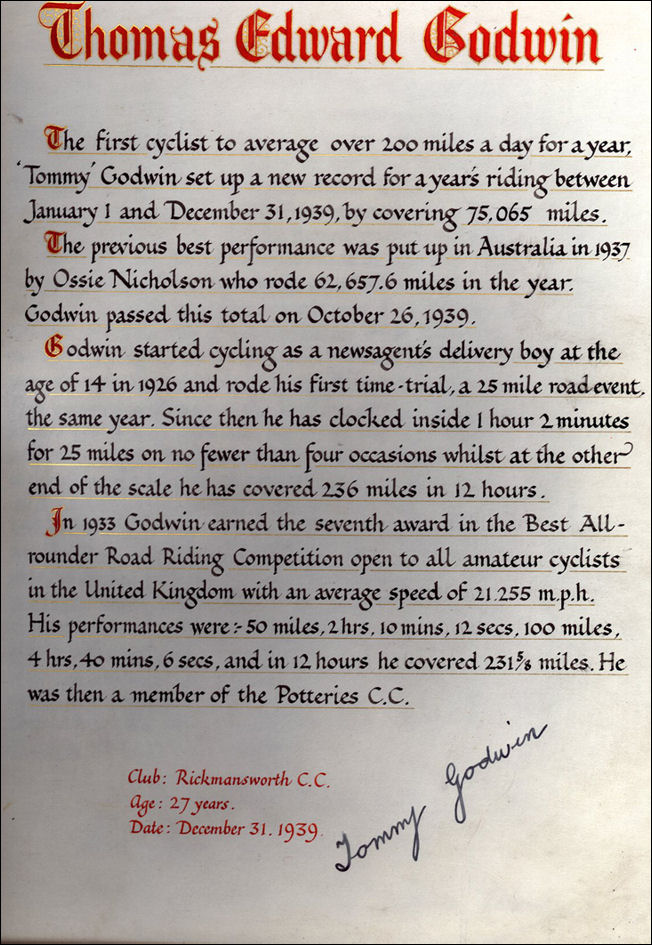 Thomas Edward Godwin
The first cyclist to average over 200 miles a day for a year,
'Tommy' Godwin set up a new record for a year's riding between
January 1 and December 31, 1939, by covering 75,065 miles.
The previous best performance was put up in Australia in 1937
by Ossie Nicholson who rode 62,657.6 miles in the year.
Godwin passed this total on October 26, 1939.
Godwin started cycling as a newsagent's delivery boy at the
age of 14 in 1926 and rode his first time-trial, a 25 mile road event,
the same year. Since then he has clocked inside 1 hour 2 minutes
for 25 miles on no fewer than four occasions whilst at the other
end of the scale he has covered 236 miles in 12 hours.
In 1933 Godwin earned the seventh award in the Best All-
rounder Road Riding Competition open to all amateur cyclists
in the United Kingdom with an average speed of 21.255 m.p.h.
His performances were :- 50 miles, 2 hrs, 10 mins, 12 secs, 100 miles,
4 hrs, 40 mins, 6 secs, and in 12 hours he covered 231 5/8 miles. He
was then a member of the Potteries C.C.
Club: Rickmansworth C.C.
Age: 27 years.
Date: December 31. 1939.
Tommy Godwin